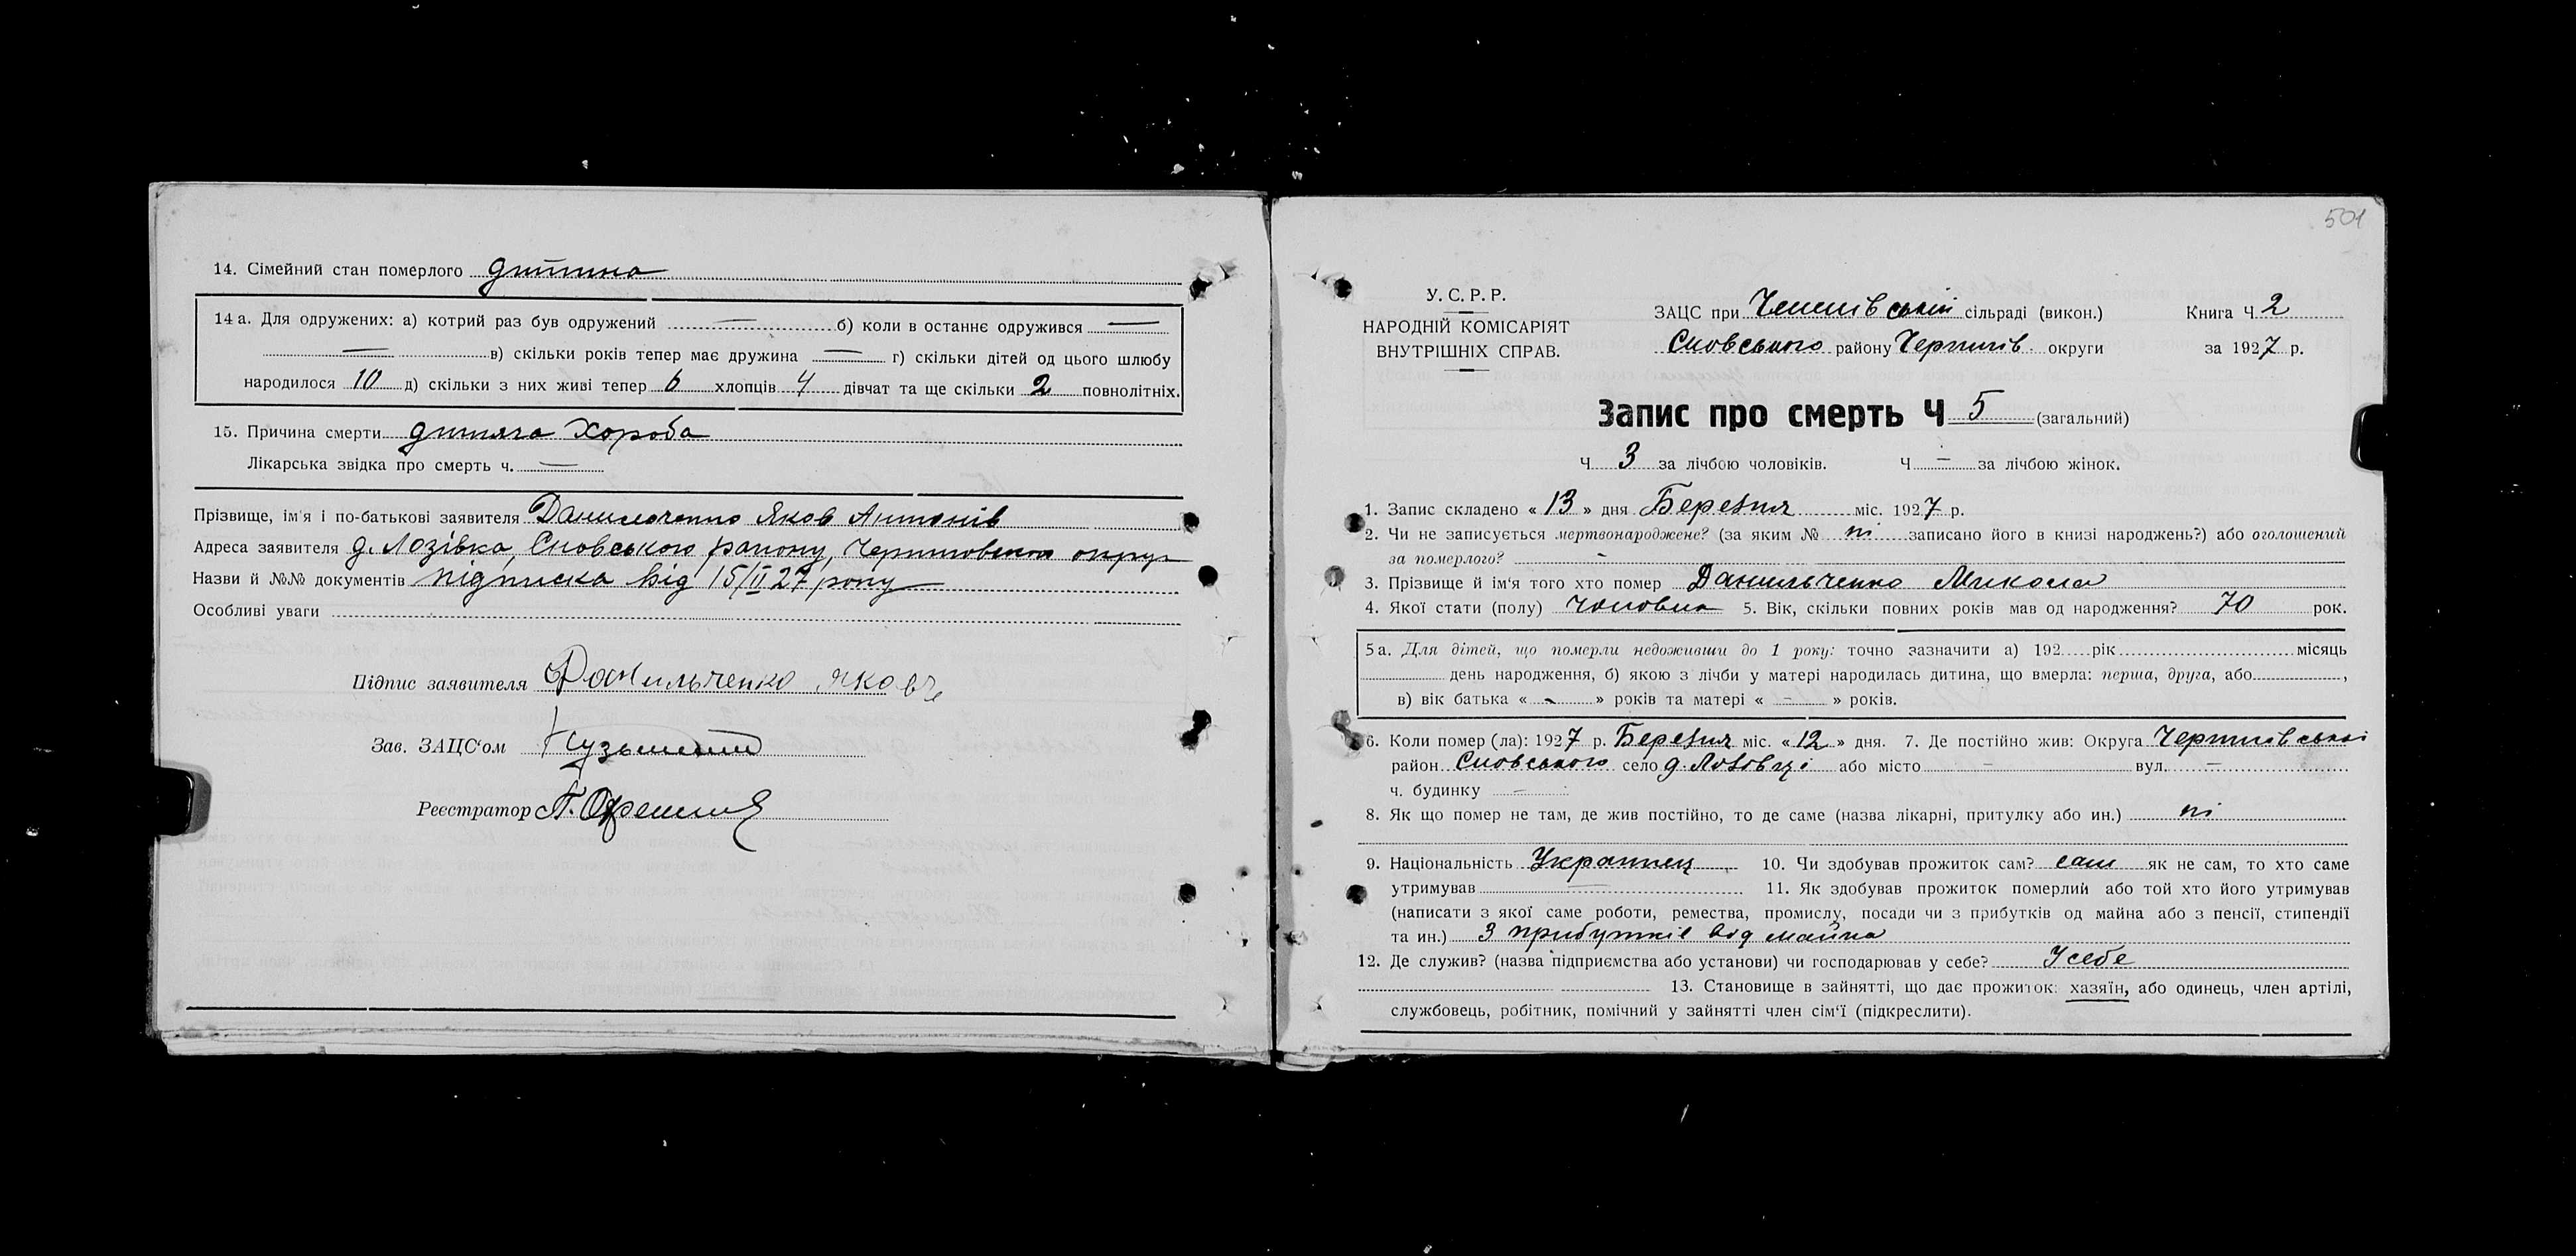 14. Сімейний стан померлого дитина
14 а. Для одружених: а) котрий раз був одружений — б) коли в останнє одружився —
— в) скільки років тепер має дружина — г) скільки дітей од цього шлюбу
народилося 10 д) скільки з них живі тепер 6 хлопців 4 дівчат та ще скільки 2 повнолітніх.
15. Причина смерти дитяча хороба
Лікарська звідка про смерть ч. —
Прізвище, ім'я і по-батькові заявителя Данильченко Яков Антонів
Адреса заявителя д. Лозівка, Сновського району, Черниговской округ
Назви й №№ документів підписка від 15/II 27 року
Особливі уваги
Підпис заявителя Данильченко Яков
Зав. ЗАЦС'ом
Реєстратор
501
У. С. Р. Р.
НАРОДНІЙ КОМІСАРІЯТ
ВНУТРІШНІХ СПРАВ.
ЗАЦС при сільраді (викон.) Книга Ч 2
Сновського району Чернигів. округи за 1927 р.
Запис про смерть Ч 5 (загальний)
Ч 3 за лічбою чоловіків. Ч — за лічбою жінок.
1. Запис складено « 13 » дня Березня міс. 1927 р.
2. Чи не записується мертвонароджене? (за яким № ні записано його в книзі народжень?) або оголошений
за померлого? —
3. Прізвище й ім'я того хто помер Данильченко Микола
4. Якої стати (полу) чоловіча 5. Вік, скільки повних років мав од народження? 70 рок.
5 а. Для дітей, що померли недоживши до 1 року: точно зазначити а) 192 рік місяць
день народження, б) якою з лічби у матері народилась дитина, що вмерла: перша, друга, або ,
в) вік батька « - » років та матері « - » років.
6. Коли помер (ла): 1927 р. Березня міс. « 12 » дня. 7. Де постійно жив: Округа Чернигівської
район Сновського село д. Лозівці або місто — вул. —
ч. будинку —
8. Як що помер не там, де жив постійно, то де саме (назва лікарні, притулку або ин.) ні
9. Національність Українец 10. Чи здобував прожиток сам? сам як не сам, то хто саме
утримував — 11. Як здобував прожиток померлий або той хто його утримував
(написати з якої саме роботи, ремества, промислу, посади чи з прибутків од майна або з пенсії, стипендії
та ин.) З прибутків від майна
12. Де служив? (назва підприємства або установи) чи господарював у себе? У себе
13. Становище в зайнятті, що дає прожиток: хазяїн, або одинець, член артілі,
службовець, робітник, помічний у зайнятті член сім'ї (підкреслити).